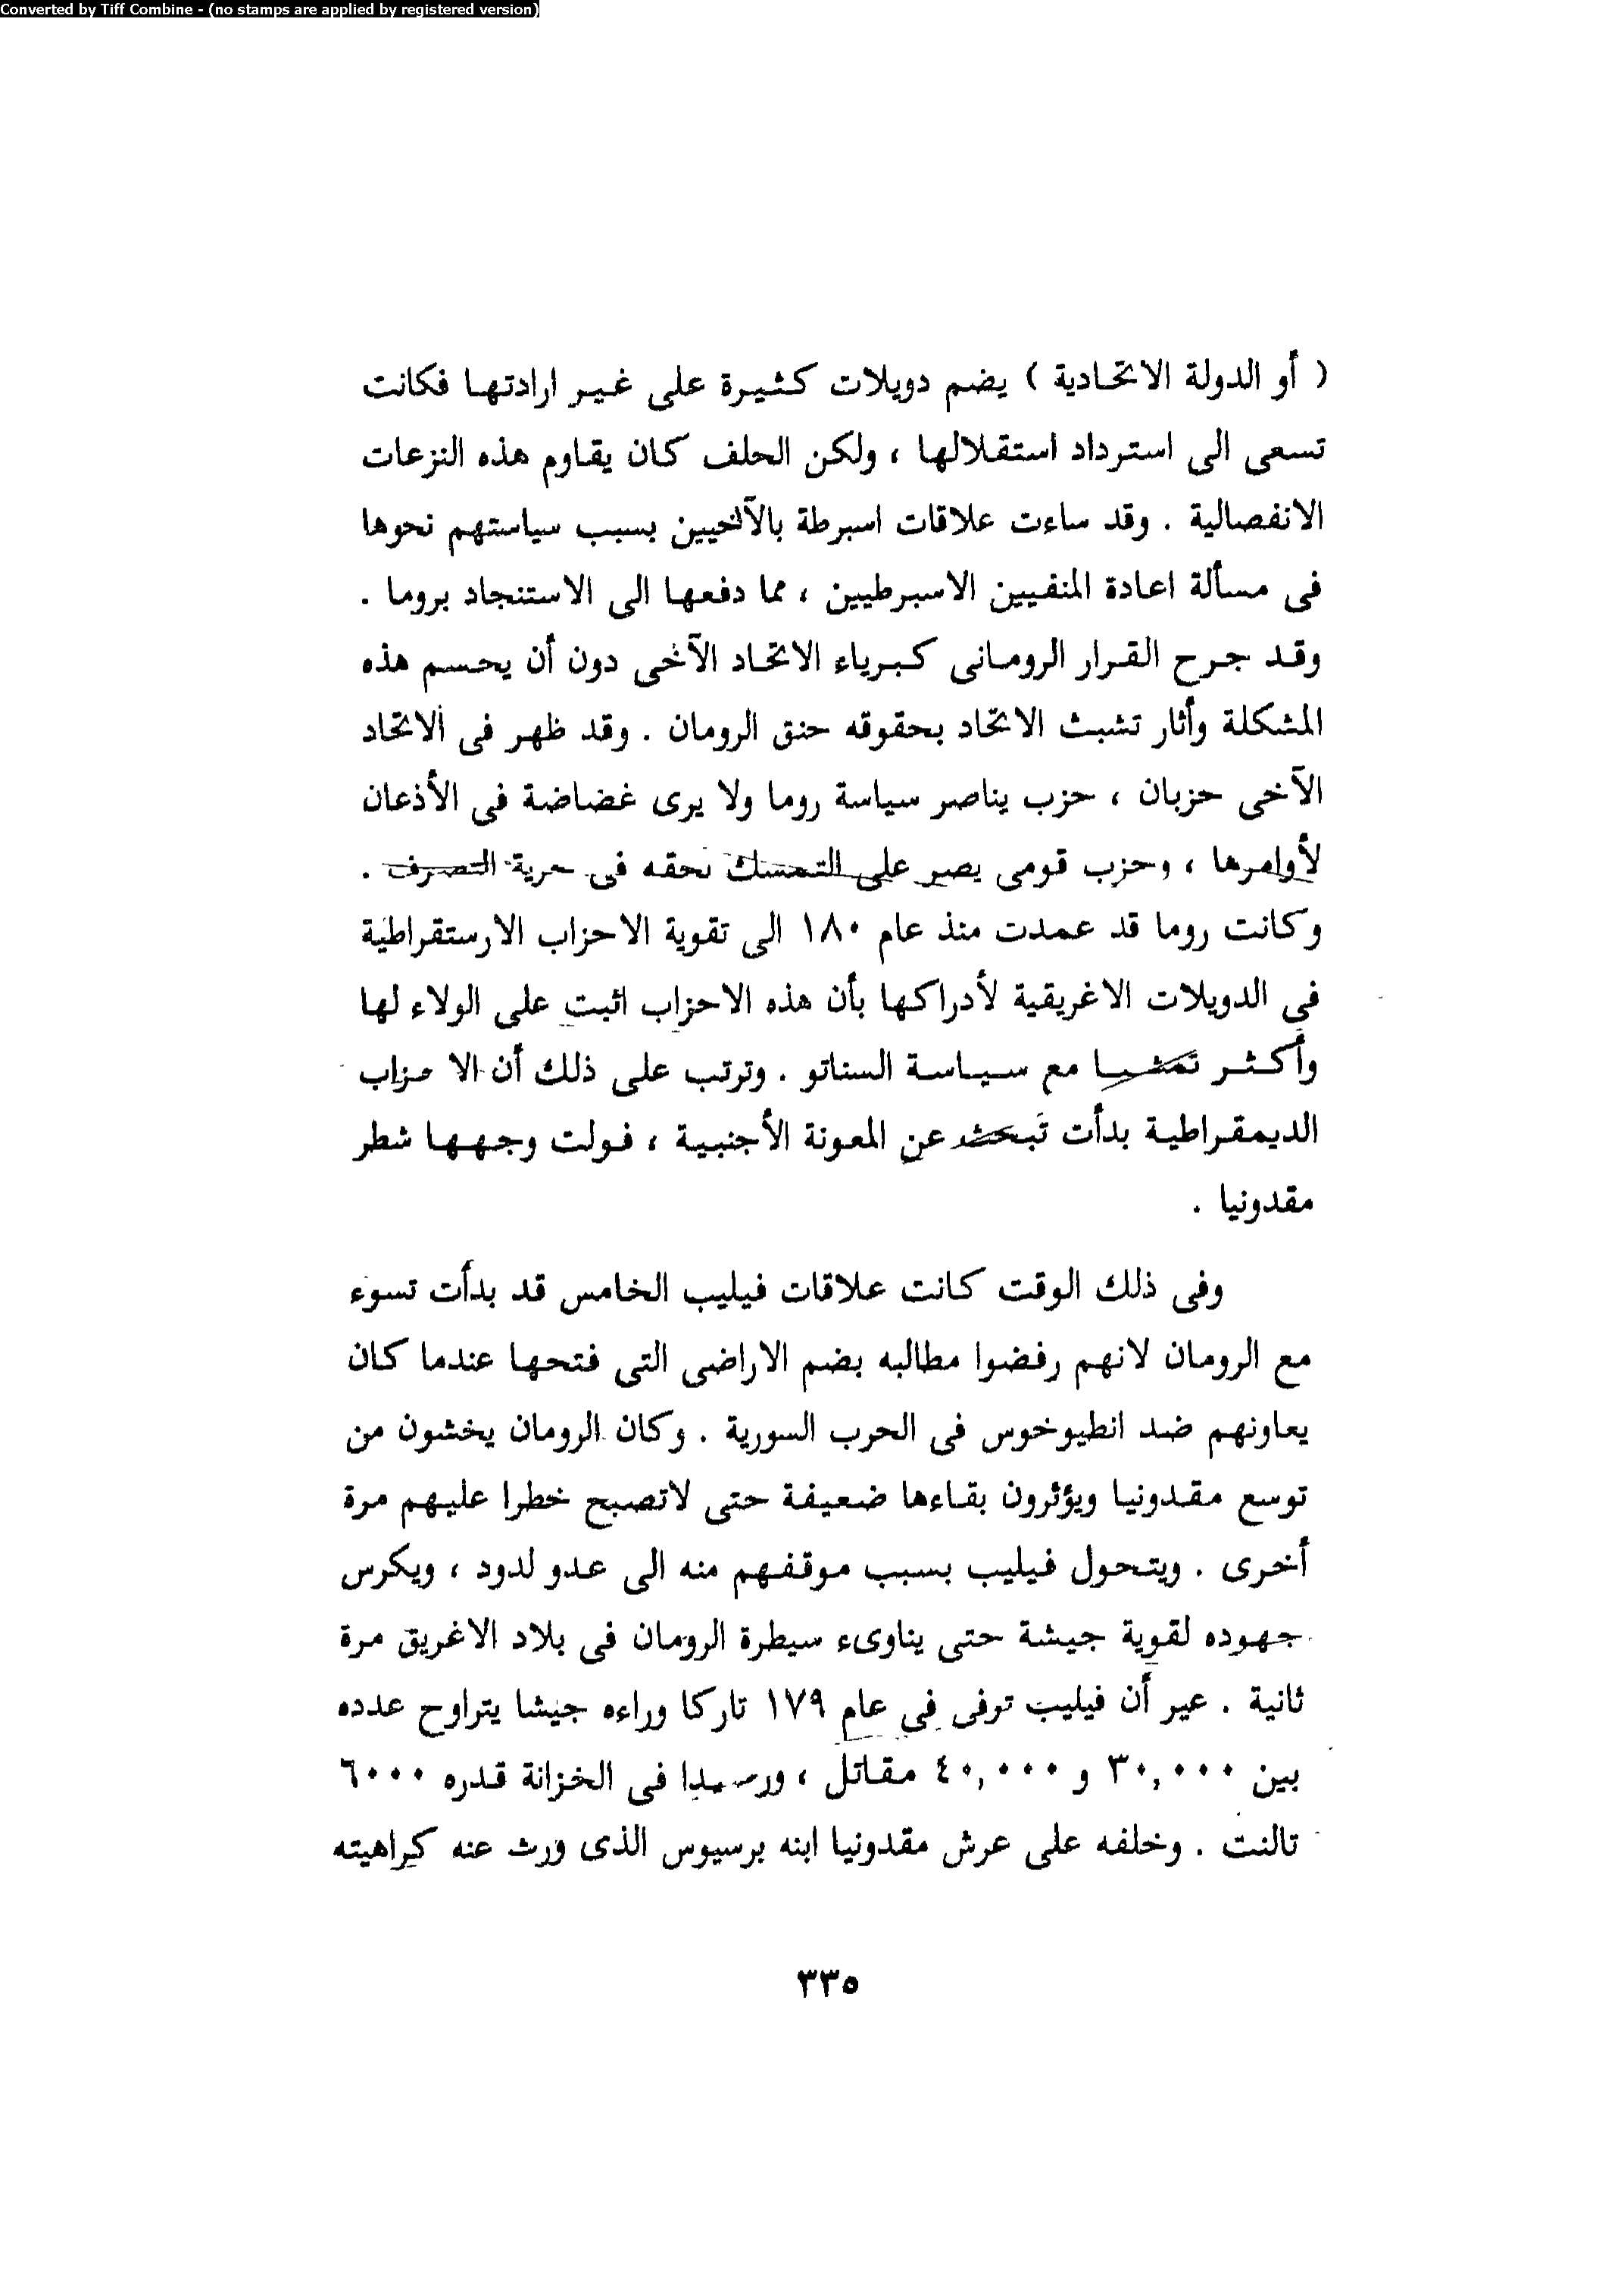 Converted by Tiff Combine - (no stamps are applied by registered version)
( أو الدولة الاتحادية ) يضم دويلات كثيرة على غير ارادتها فكانت
تسعى الى استرداد استقلالها ، ولكن الحلف كان يقاوم هذه النزعات
الانفصالية . وقد ساءت علاقات اسبرطة بالآخيين بسبب سياستهم نحوها
فى مسألة اعادة المنفيين الاسبرطيين ، مما دفعها الى الاستنجاد بروما .
وقد جرح القرار الرومانى كبرياء الاتحاد الآخى دون أن يحسم هذه
المشكلة وأثار تشبث الاتحاد بحقوقه حنق الرومان . وقد ظهر فى الاتحاد
الآخى حزبان ، حزب يناصر سياسة روما ولا يرى غضاضة فى الأذعان
لأوامرها ، وحزب قومى يصر على التمسك بحقه فى حرية التصرف .
وكانت روما قد عمدت منذ عام ١٨٠ الى تقوية الاحزاب الارستقراطية
فى الدويلات الاغريقية لأدراكها بأن هذه الاحزاب اثبت على الولاء لها
وأكثر تمشيا مع سياسة السناتو . وترتب على ذلك أن الاحزاب
الديمقراطية بدأت تبحث عن المعونة الأجنبية ، فولت وجهها شطر
مقدونيا .
وفى ذلك الوقت كانت علاقات فيليب الخامس قد بدأت تسوء
مع الرومان لانهم رفضوا مطالبه بضم الاراضى التى فتحها عندما كان
يعاونهم ضد انطيوخوس فى الحرب السورية . وكان الرومان يخشون من
توسع مقدونيا ويؤثرون بقاءها ضعيفة حتى لاتصبح خطرا عليهم مرة
أخرى . ويتحول فيليب بسبب موقفهم منه الى عدو لدود ، ويكرس
جهوده لقوية جيشة حتى يناوىء سيطرة الرومان فى بلاد الاغريق مرة
ثانية . عير أن فيليب توفى فى عام ١٧٩ تاركا وراءه جيشا يتراوح عدده
بين ٣٠,٠٠٠ و ٤٠,٠٠٠ مقاتل ، ورصيدا فى الخزانة قدره ٦٠٠٠
تالنت . وخلفه على عرش مقدونيا ابنه برسيوس الذى ورث عنه كراهيته
٣٣٥